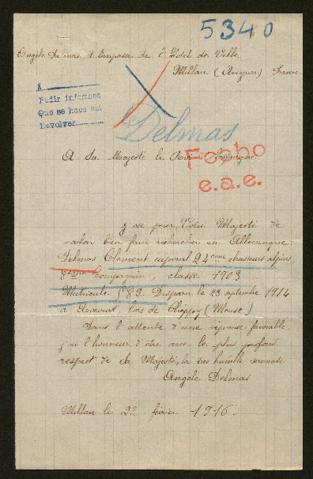 5340
Angèle Delmas, 1 Impasse de l'Hotel de Ville
Millau (Aveyron) France
A
Pedir informes
Que se hace en
Devolver
Delmas
A Sa Majesté le
Fecho
e.a.e.
Je prie Votre Majesté de
vouloir bien faire rechercher en Allemagne
Delmas Clément caporal 24eme chasseurs alpins
8eme Compagnie, classe 1903
Matricule 189. Disparu le 23 septembre 1914
à bois de (Meuse)
Dans l'attente d'une réponse favorable
j'ai l'honneur d'être avec le plus profond
respect de Sa Majesté, la très humble servante
Angèle Delmas
Millau le février 1916.